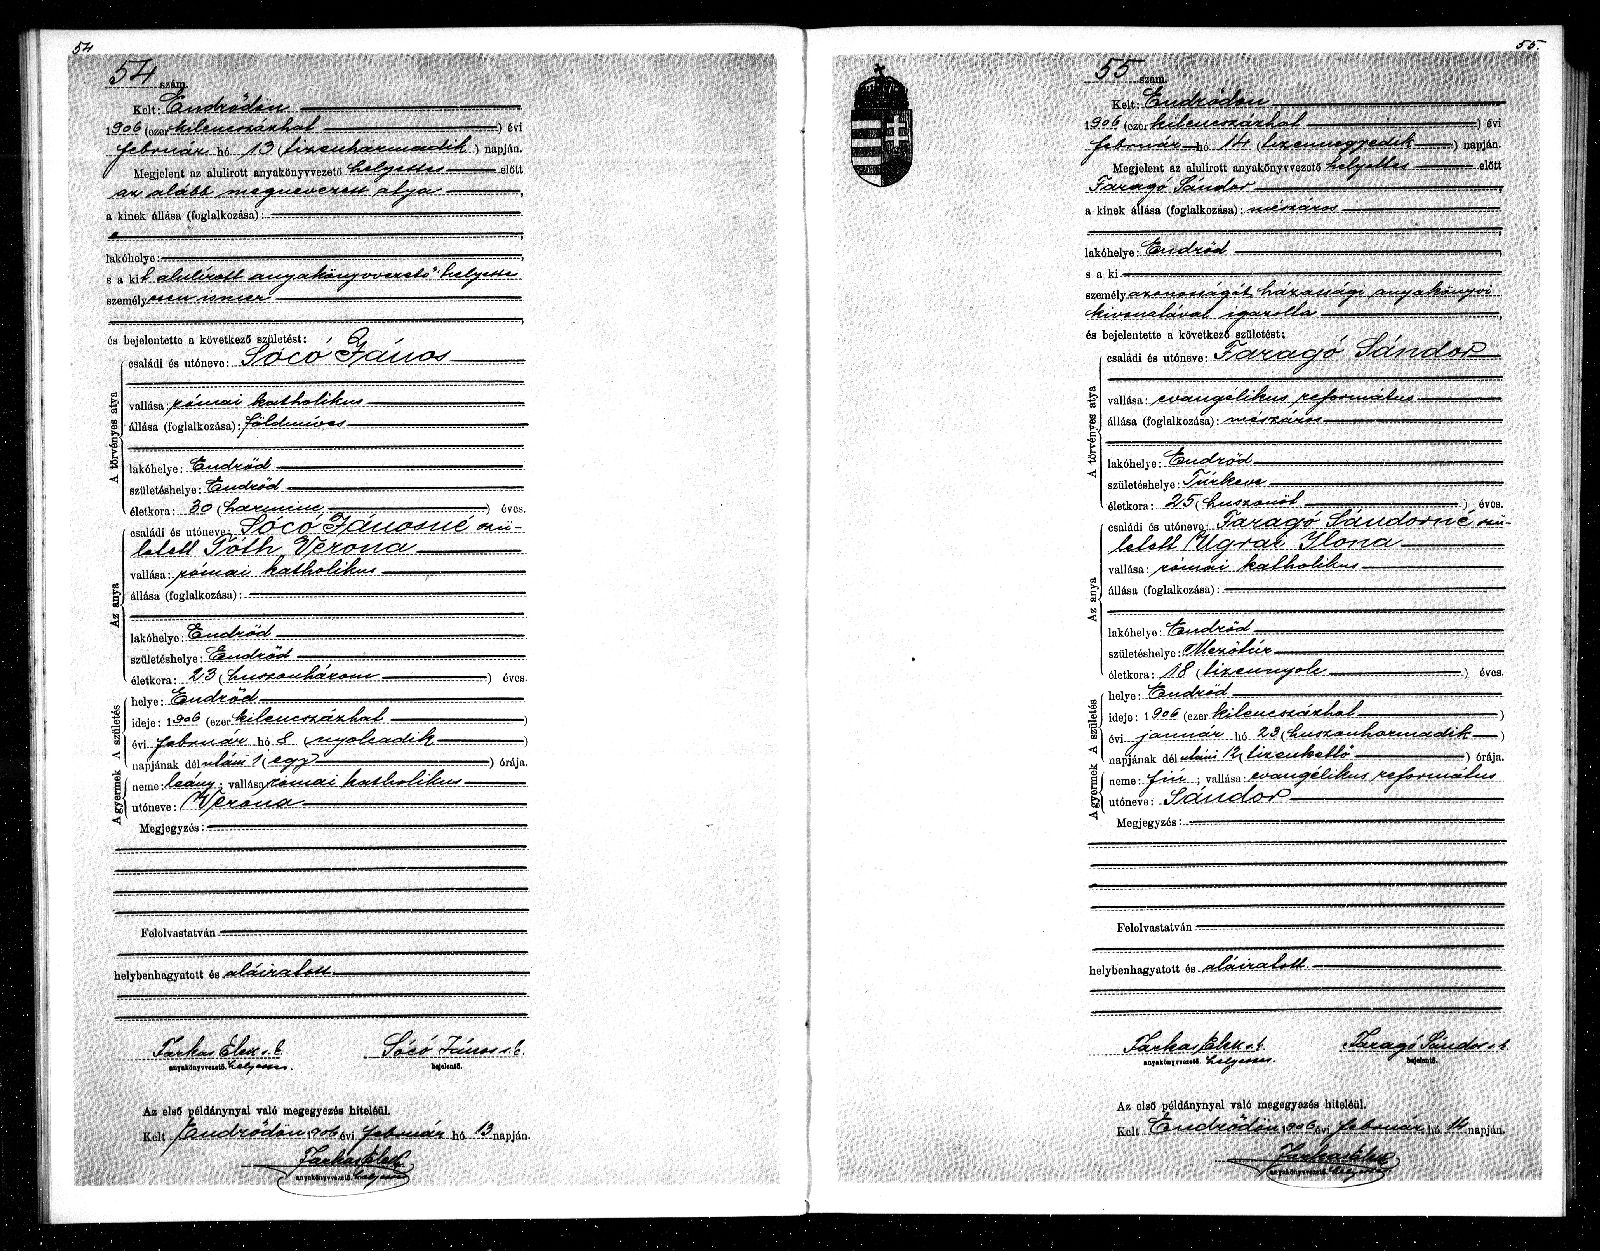 54
54 szám.
Kelt: Endrődön
1906 (ezer kilenczszázhat) évi
február hó 13 (tizenharmadik) napján.
Megjelent az alulirott anyakönyvvezető helyettes előtt
az alább megnevezett atya,
a kinek állása (foglalkozása):
lakóhelye:
s a kit alulírott anyakönyvvezető helyettes
személyesen ismer
és bejelentette a következő születést:
A törvényes atya
családi és utóneve: Sócó János
vallása: római katholikus
állása (foglalkozása): földmíves
lakóhelye: Endrőd
születéshelye: Endrőd
életkora: 30 (harmincz) éves.
Az anya
családi és utóneve: Sócó Jánosné szü-
letett Tóth Verona
vallása: római katholikus
állása (foglalkozása):
lakóhelye: Endrőd
születéshelye: Endrőd
életkora: 23 (huszonhárom) éves.
A születés
helye: Endrőd
ideje: 1906 (ezer kilenczszázhat)
évi február hó 8 (nyolcadik)
napjának dél utáni 1 (egy) órája.
A gyermek
neme: leány; vallása: római katholikus
utóneve: Verona
Megjegyzés:
Felolvastatván
helybenhagyatott és aláiratott.
Farkas Elek s. k. Sócó János s. k.
anyakönyvvezető. helyettes. bejelentő.
Az első példánynyal való megegyezés hiteléül.
Kelt Endrődön, 1906 évi február hó 13 napján.
Farkas Elek
anyakönyvvezető. helyettes
55.
55 szám.
Kelt: Endrődön
1906 (ezer kilenczszázhat) évi
február hó 14 (tizennegyedik) napján.
Megjelent az alulirott anyakönyvvezető helyettes előtt
Faragó Sándor,
a kinek állása (foglalkozása): mészáros
lakóhelye: Endrőd
s a ki
személyazonosságát házassági anyakönyvi
kivonatával igazolta
és bejelentette a következő születést:
A törvényes atya
családi és utóneve: Faragó Sándor
vallása: evangélikus református
állása (foglalkozása): mészáros
lakóhelye: Endrőd
születéshelye: Túrkeve
életkora: 25 (huszonöt) éves.
Az anya
családi és utóneve: Faragó Sándorné szü-
letett Ugrai Ilona
vallása: római katholikus
állása (foglalkozása):
lakóhelye: Endrőd
születéshelye: Mezőtúr
életkora: 18 (tizennyolc) éves.
A születés
helye: Endrőd
ideje: 1906 (ezer kilenczszázhat)
évi január hó 23 (huszonharmadik)
napjának dél utáni 12 (tizenkettő) órája.
A gyermek
neme: fiú; vallása: evangélikus református
utóneve: Sándor
Megjegyzés:
Felolvastatván
helybenhagyatott és aláiratott.
Farkas Elek s. k. Faragó Sándor s. k.
anyakönyvvezető. helyettes. bejelentő.
Az első példánynyal való megegyezés hiteléül.
Kelt Endrődön, 1906 évi február hó 14 napján.
Farkas Elek
anyakönyvvezető. helyettes